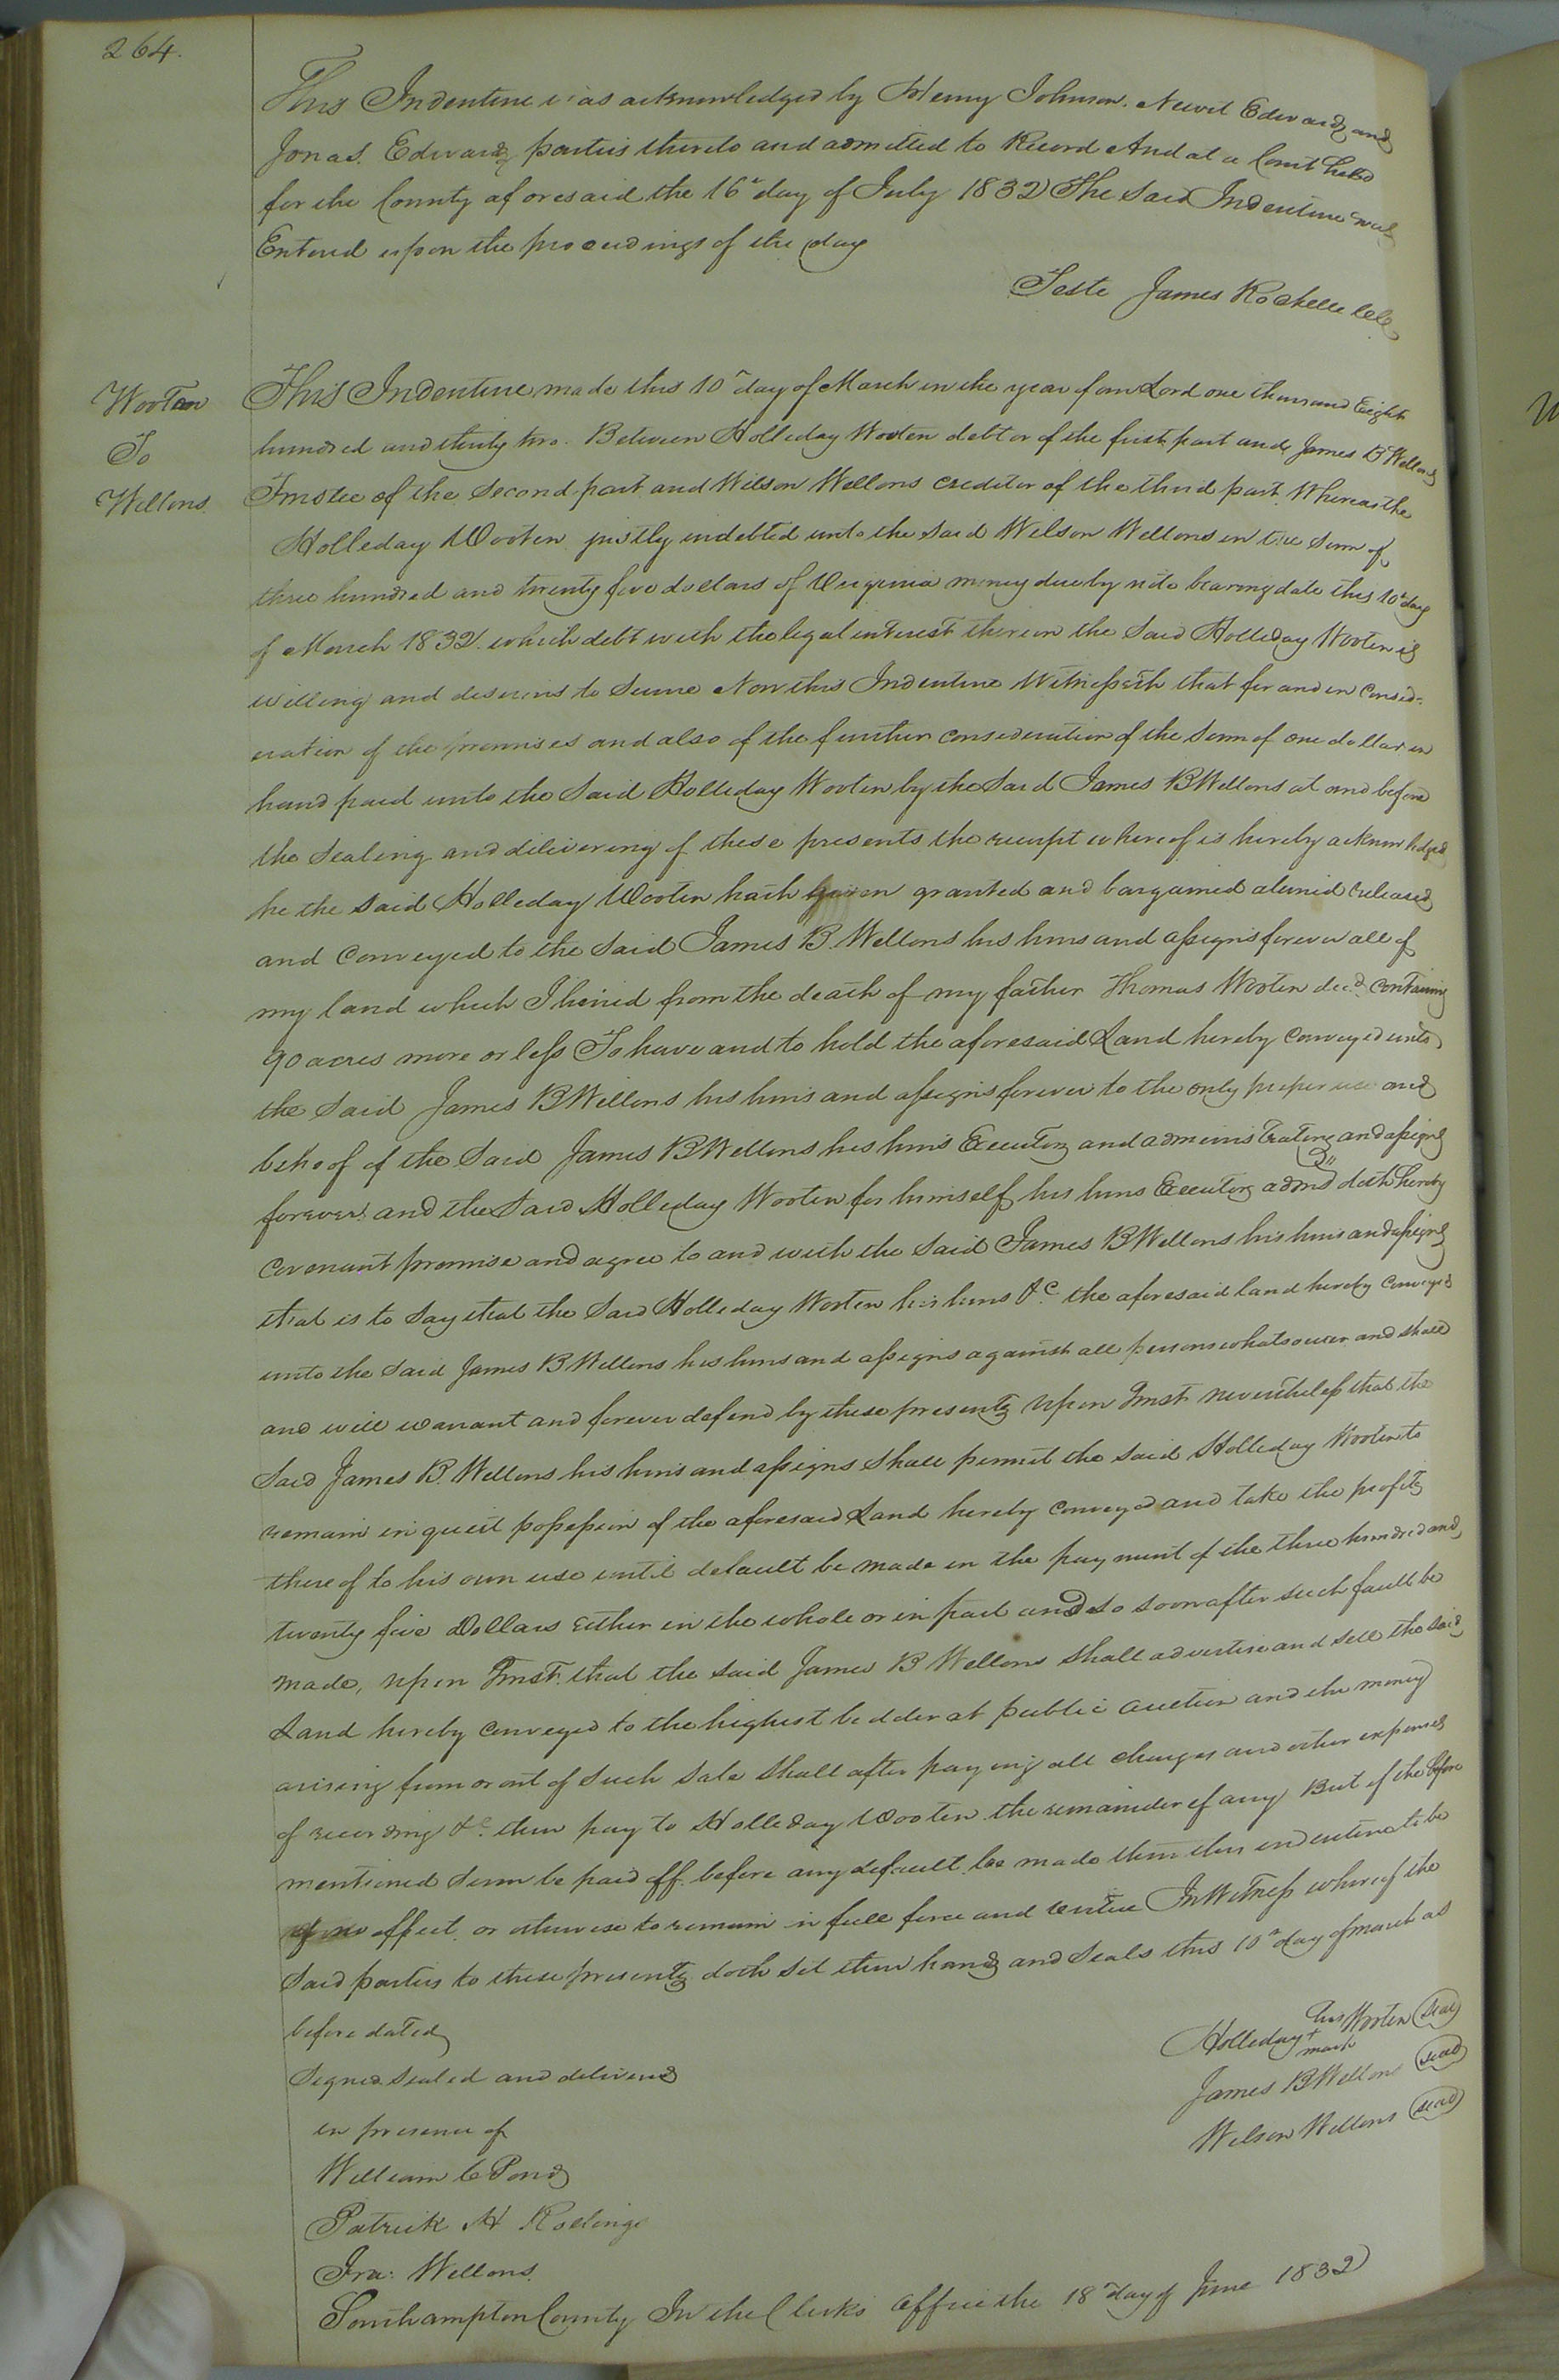 264.
This Indenture was acknowledged by Henry Johnson. Newit Edwards and
Jonas. Edwards parties thereto and admitted to Record And at a Court held
for the County aforesaid the 16th day of July 1832 The Said Indenture was
Entered upon the proceedings of the day
Teste James Rochelle Clk
Wooten
To
Wellons
This Indenture made this 10th day of March in the year of our Lord one thousand Eight
hundred and thirty two. Between Holleday Wooten debtor of the first part and James B Wellons
Trustee of the Second part and Wilson Wellons creditor of the third part Whereas the
Holleday Wooten justly indebted unto the Said Wilson Wellons in the Sum of
three hundred and twenty five dollars of Virginia money due by note bearing date this 10th day
of March 1832. which debt with the legal interest thereon the Said Holleday Wooten is
willing and desirous to Secure Now this Indenture Witnesseth that for and in Consid-
eration of the premises and also of the further consideration of the Sum of one dollar in
hand paid unto the Said Holleday Wooten by the Said James B Wellons at and before
the Sealing and delivering of these presents the receipt whereof is hereby acknowledged
he the said Holleday Wooten hath given granted and bargained aliened released
and Conveyed to the Said James B. Wellons his heirs and assigns forever all of
my land which I heired from the death of my father Thomas Wooten decd. Containing
90 acres more or less To have and to hold the aforesaid Land hereby Conveyed unto
the Said James B Wellons his heirs and assigns forever to the only proper use and
behoof of the Said James B Wellons his heirs Executors and administrators and assigns
forever. and the Said Holleday Wooten for himself his heirs Executors admrs doth hereby
Covenant promise and agree to and with the Said James B Wellons his heirs and assigns
that is to Say that the Said Holleday Wooten his heirs &c. the aforesaid land hereby Conveyed
unto the Said James B Wellons his heirs and assigns against all persons whatsoever and shall
and will warrant and forever defend by these presents Upon Trust nevertheless that the
Said James B. Wellons his heirs and assigns Shall permit the Said Holleday Wooten to
remain in quiet possession of the aforesaid Land hereby Conveyed and take the profits
thereof to his own use until default be made in the payment of the three hundred and
twenty five Dollars either in the whole or in part and so soon after such fault be
made, upon Trust. that the said James B Wellons Shall advertise and Sell the said
Land hereby Conveyed to the highest bidder at public auction and the money
arising from or out of Such Sale Shall after paying all charges and other expenses
of recording &c. then pay to Holleday Wooten the remainder if any But if the before
mentioned Sum be paid off. before any default be made then this indenture to be
of no effect or otherwise to remain in full force and virtue In Witness whereof the
Said parties to these presents doth Set their hands and Seals this 10th day of march as
before dated
Signed Sealed and delivered
in presence of
Holleday his + mark Wooten (seal)
James B Wellons (seal)
Wilson Wellons (seal)
William C Pond
Patrick H Rollings
Ira: Wellons.
Southampton County In the Clerks office the 18th day of June 1832